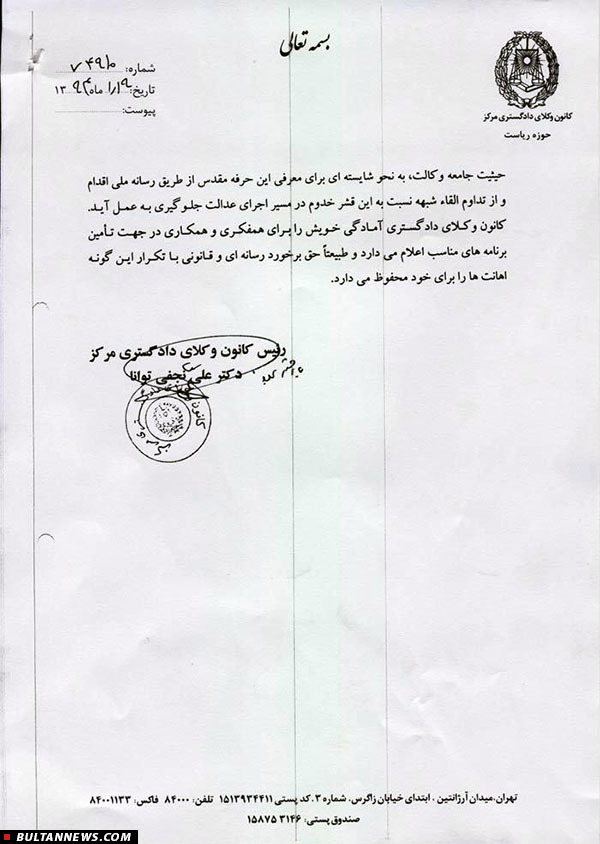 بسمه تعالی
کانون وکلای دادگستری مرکز
حوزه ریاست
شماره:
تاریخ: ماه ۱۳
پیوست:
حیثیت جامعه وکالت، به نحو شایسته ای برای معرفی این حرفه مقدس از طریق رسانه ملی اقدام
و از تداوم القاء شبهه نسبت به این قشر خدوم در مسیر اجرای عدالت جلوگیری به عمل آید.
کانون وکلای دادگستری آمادگی خویش را برای همفکری و همکاری در جهت تأمین
برنامه های مناسب اعلام می دارد و طبیعتاً حق برخورد رسانه ای و قانونی با تکرار این گونه
اهانت ها را برای خود محفوظ می دارد.
رئیس کانون وکلای دادگستری مرکز
دکتر علی نجفی توانا
تهران، میدان آرژانتین ، ابتدای خیابان زاگرس، شماره ۳، کد پستی ۱۵۱۳۹۳۴۴۱۱ تلفن: ۸۴۰۰۰ فاکس: ۸۴۰۰۱۱۳۳
صندوق پستی: ۳۱۴۶ ۱۵۸۷۵
BULTANNEWS.COM